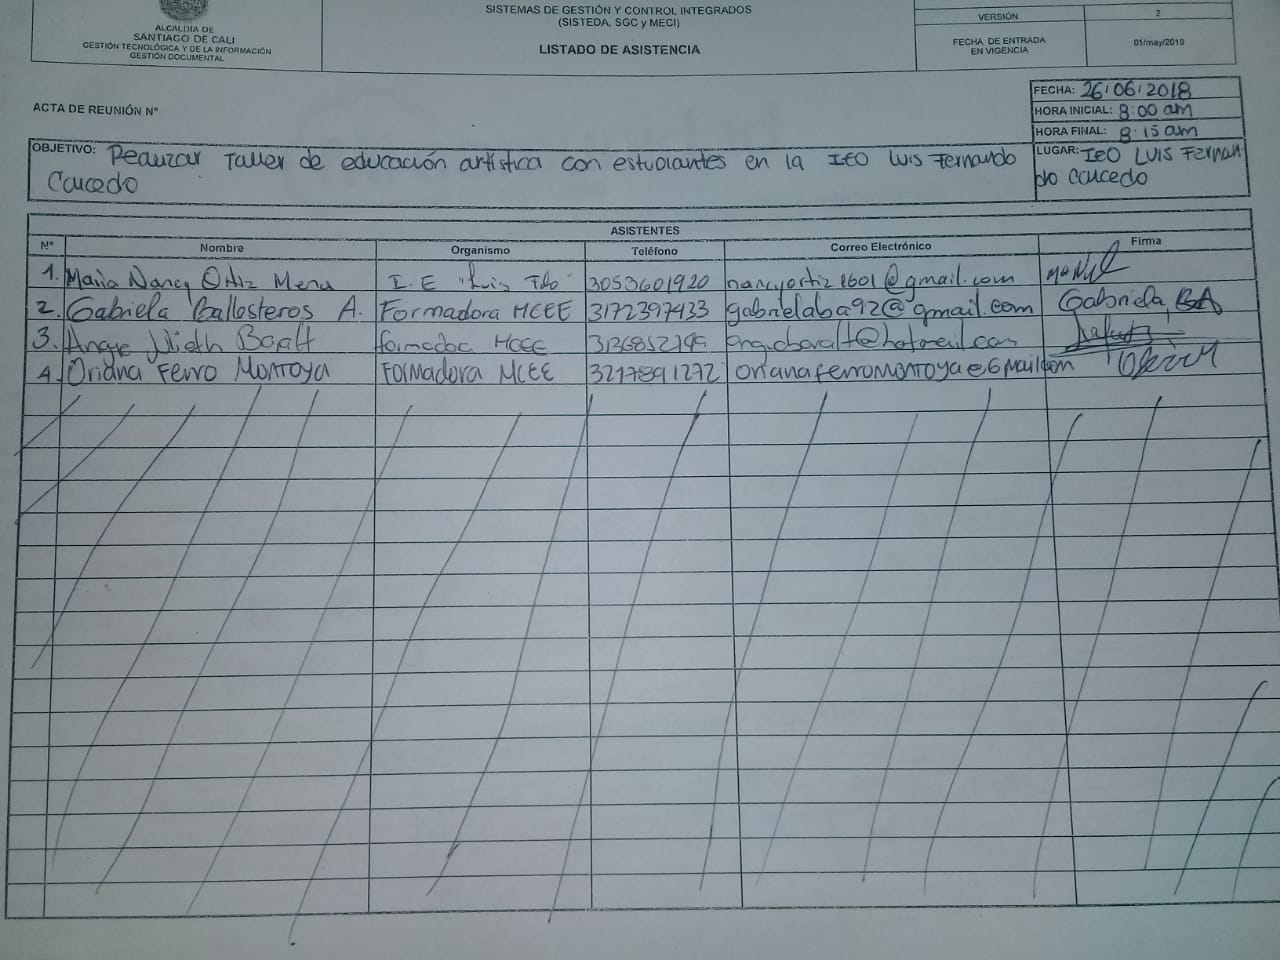 ALCALDÍA DE
SANTIAGO DE CALI
GESTIÓN TECNOLÓGICA Y DE LA INFORMACIÓN
GESTIÓN DOCUMENTAL
SISTEMAS DE GESTIÓN Y CONTROL INTEGRADOS
(SISTEDA, SGC y MECI)
LISTADO DE ASISTENCIA
VERSIÓN 2
FECHA DE ENTRADA
EN VIGENCIA
01/may/2018
ACTA DE REUNIÓN N°
FECHA: 26/06/2018
HORA INICIAL: 8:00 am
HORA FINAL: 8:15 am
OBJETIVO: Realizar Taller de educación artística con estudiantes en la IEO Luis Fernando
Caicedo
LUGAR: IEO LUIS FERNAN
do Caicedo
ASISTENTES
N° Nombre Organismo Teléfono Correo Electrónico Firma
1. Maria Nancy Ortiz Mena I.E "Luis Fdo" 3053601920 nancyortiz8601@gmail.com
2. Gabriela Ballesteros A. Formadora MCEE 3172397433 gabrielaba92@gmail.com Gabriela BA
3. Angie Julieth formadora MCEE @hotmail.com
4. Oriana Ferro Montoya Formadora MCEE 3217891272 orianaferromontoya@Gmail.com